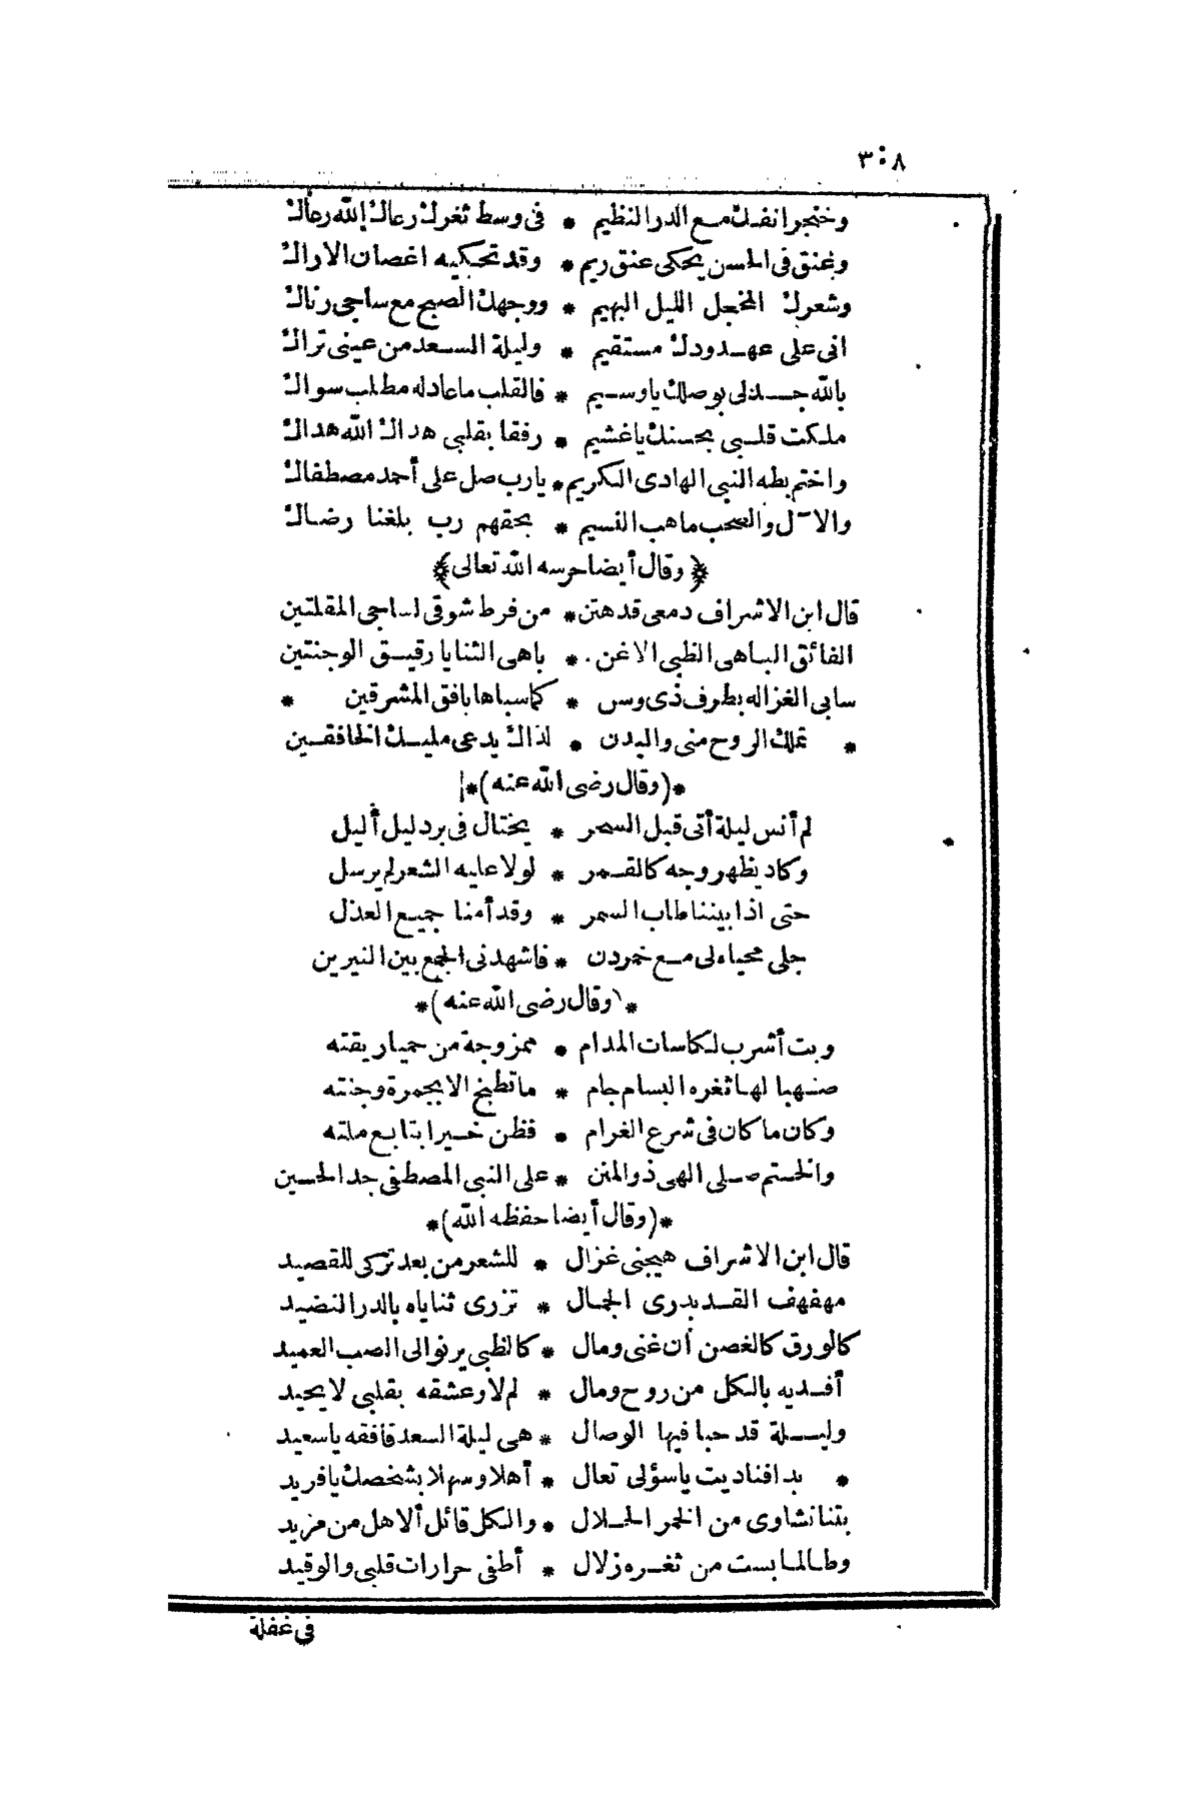 ٣٠٨
وخنجر انفك مع الدر النظيم * فى وسط ثغرك رعاك إلله رعاك
وعنق فى الحسن يحكى عنق ريم * وقد تحكيه اغصان الاراك
وشعرك المخجل الليل البهيم * ووجهك الصبح مع ساجى رناك
انى على عهد ودك مستقيم * وليلة السعد من عينى تراك
بالله جد لى بوصلك يا وسيم * فالقلب ما عاد له مطلب سواك
ملكت قلبى بحسنك ياغشيم * رفقا بقلبى هداك الله هداك
واختم بطه النبى الهادى الكريم * يارب صل على أحمد مصطفاك
والاۤل والصحب ماهب النسيم * بحقهم رب بلغنا رضاك
﴿وقال أيضا حرسه الله تعالى﴾
قال ابن الاشراف دمعى قد هتن * من فرط شوقى لساجى المقلتين
الفائق الباهى الظبى الاغن * باهى الثنايا رقيق الوجنتين
سابى الغزاله بطرف ذى وسن * كما سباها بافق المشرقين *
* تملك الروح منى والبدن * لذاك يدعى مليك الخافقين
*(وقال رضى الله عنه)*
لم أنس ليلة أتى قبل السحر * يختال فى برد ليل أليل
وكاد يظهر وجه كالقمر * لولا عليه الشعر لم يرسل
حتى اذا بيننا طاب السمر * وقد أمنا جميع العذل
جلى محياه لى مع خمر دن * فاشهدنى الجمع بين النيرين
*(وقال رضى الله عنه)*
وبت أشرب لكاسات المدام * ممزوجة من حميا ريقته
صهبا لها ثغره البسام جام * ما تطبخ الا بجمرة وجنته
وكان ما كان فى شرع الغرام * فظن خيرا بتابع ملته
والختم صلى الهى ذو المنن * على النبى المصطفى جد الحسين
*(وقال أيضا حفظه الله)*
قال ابن الاشراف هيجنى غزال * للشعر من بعد تركى للقصيد
مهفهف القد بدرى الجمال * تزرى ثناياه بالدر النضيد
كالورق كالغصن أن غنى ومال * كالظبى يرنو الى الصب العميد
أفديه بالكل من روح ومال * لم لا وعشقه بقلبى لا يحيد
وليلة قد حبا فيها الوصال * هى ليلة السعد فافقه يا سعيد
* بدا فناديت ياسؤلى تعال * أهلا وسهلا بشخصك يافريد
بتنا نشاوى من الخمر الحلال * والكل قائل ألا هل من مزيد
وطالما بست من ثغره زلال * أطفى حرارات قلبى والوقيد
فى غفلة